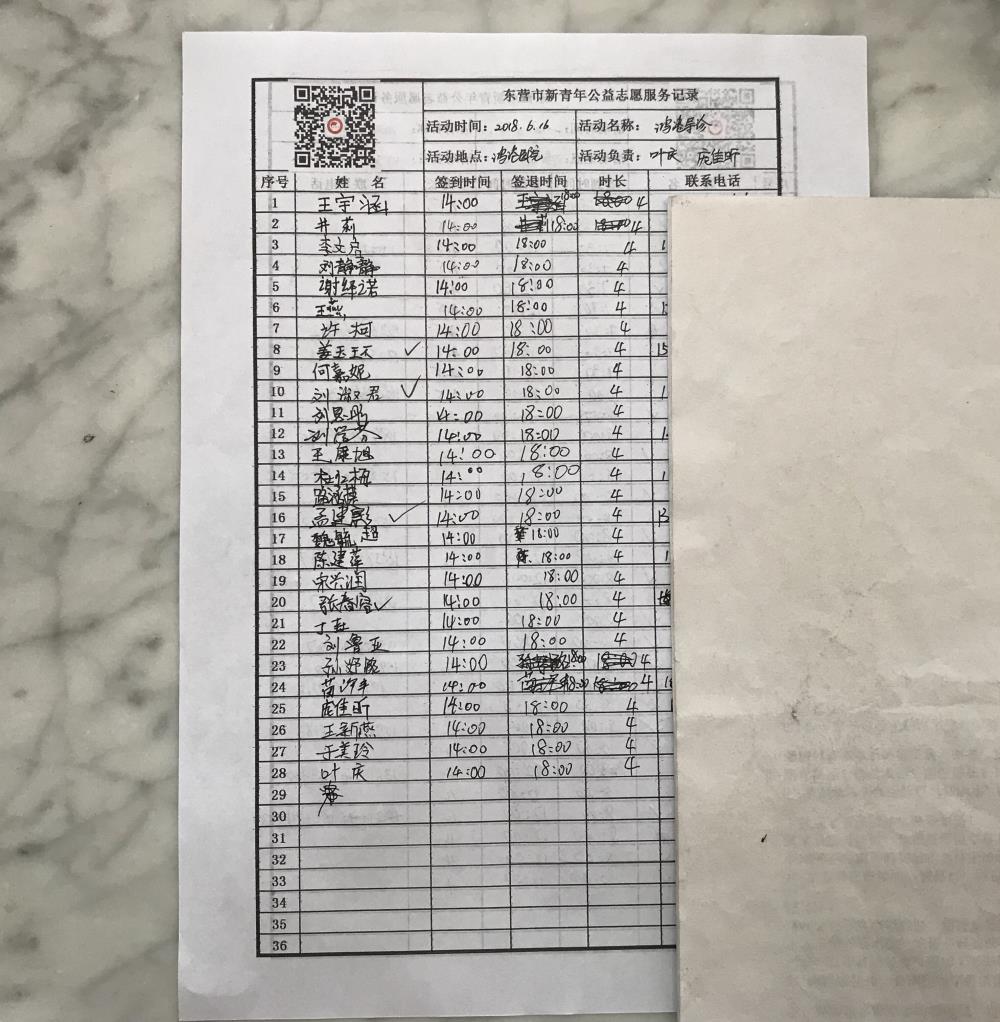 东营市新青年公益志愿服务记录
活动时间：2018.6.16 活动名称：鸿港导诊
活动地点：鸿港医院 活动负责：叶庆 庞佳昕
序号 姓名 签到时间 签退时间 时长 联系电话
1 王宇涵 14:00 18:00 4
2 井莉 14:00 18:00 4
3 李文启 14:00 18:00 4
4 刘静静 14:00 18:00 4
5 谢绎诺 14:00 18:00 4
6 王燕 14:00 18:00 4
7 许柯 14:00 18:00 4
8 姜玉珏 14:00 18:00 4 15
9 何嘉妮 14:00 18:00 4
10 刘淑君 14:00 18:00 4
11 刘恩彤 14:00 18:00 4
12 刘学芬 14:00 18:00 4
13 王康旭 14:00 18:00 4
14 杜仁梅 14:00 18:00 4
15 14:00 18:00 4
16 孟建彰 14:00 18:00 4
17 魏毓超 14:00 18:00 4
18 陈建萍 14:00 陈 18:00 4
19 宋兴润 14:00 18:00 4
20 张春容 14:00 18:00 4
21 丁燕 14:00 18:00 4
22 刘鲁亚 14:00 18:00 4
23 孙妤 14:00 18:00 4
24 14:00 18:00 4
25 庞佳昕 14:00 18:00 4
26 王新燕 14:00 18:00 4
27 于美玲 14:00 18:00 4
28 叶庆 14:00 18:00 4
29
30
31
32
33
34
35
36